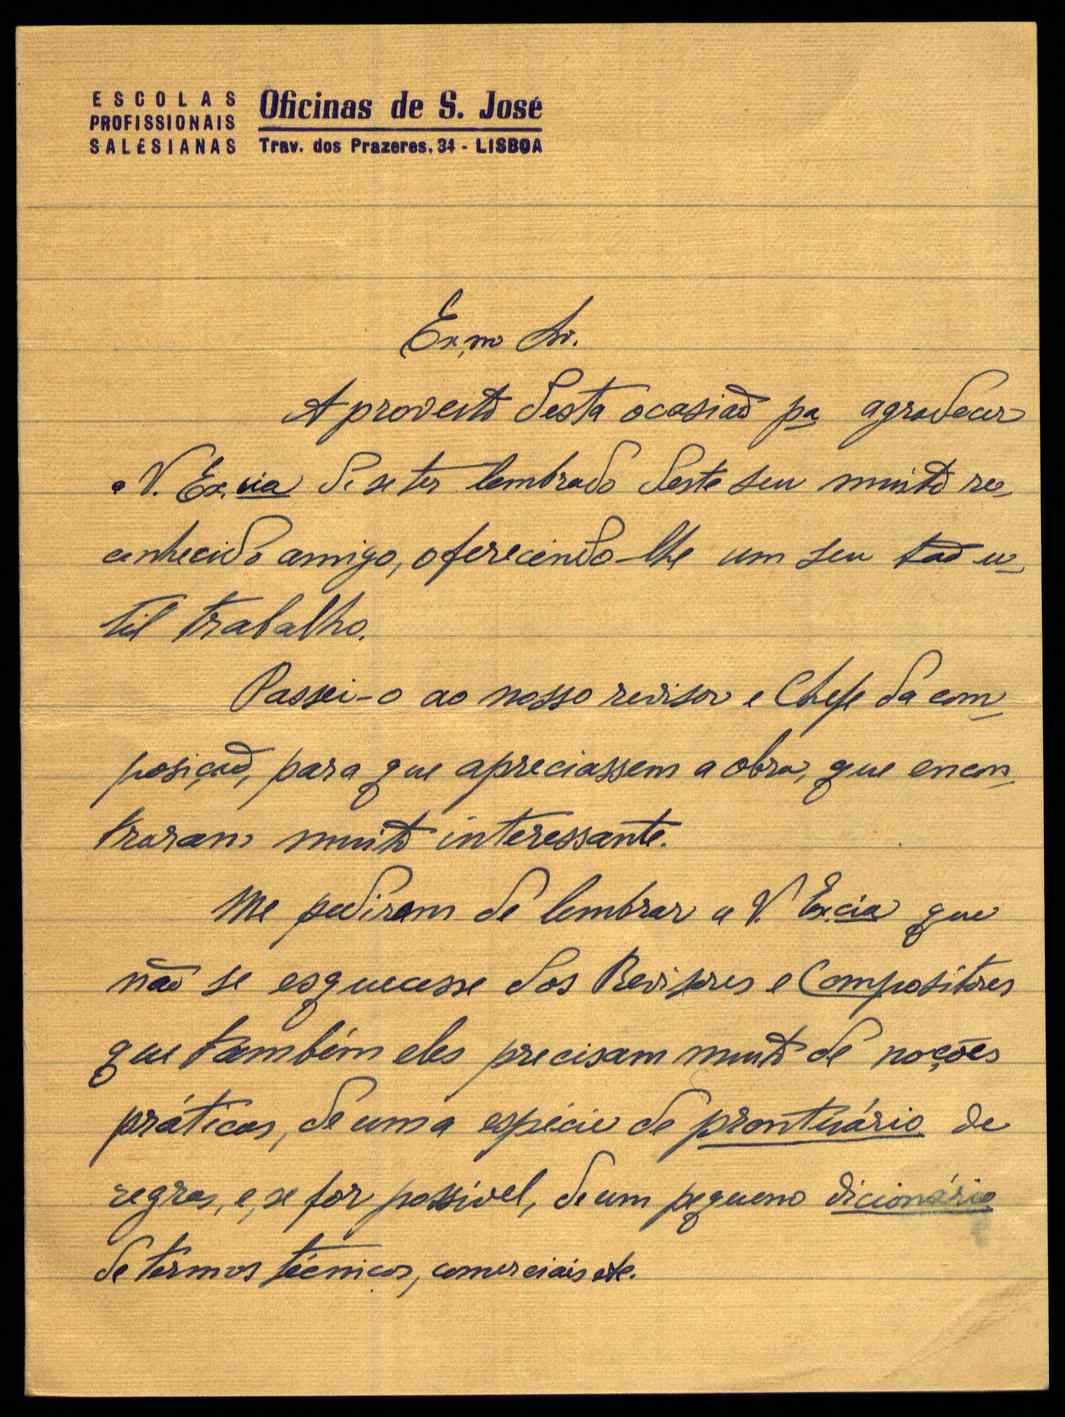 ESCOLAS PROFISSIONAIS SALESIANAS
Oficinas de S. José
Trav. dos Prazeres, 34 - LISBOA
Ex.mo Sr.
Aproveito desta ocasião pa agradecer
a V. Ex.cia de se ter lembrado deste seu muito re-
conhecido amigo, oferecendo-lhe um seu tão u-
til trabalho.
Passei-o ao nosso revisor e Chefe da com-
posição, para que apreciassem a obra, que encon-
traram muito interessante.
Me pediram de lembrar a V. Ex.cia que
não se esquecesse dos Revisores e Compositores
que também eles precisam muito de noções
práticas, de uma espécie de prontuário de
regras, e, se for possível, de um pequeno dicionário
de termos técnicos, comerciais etc.